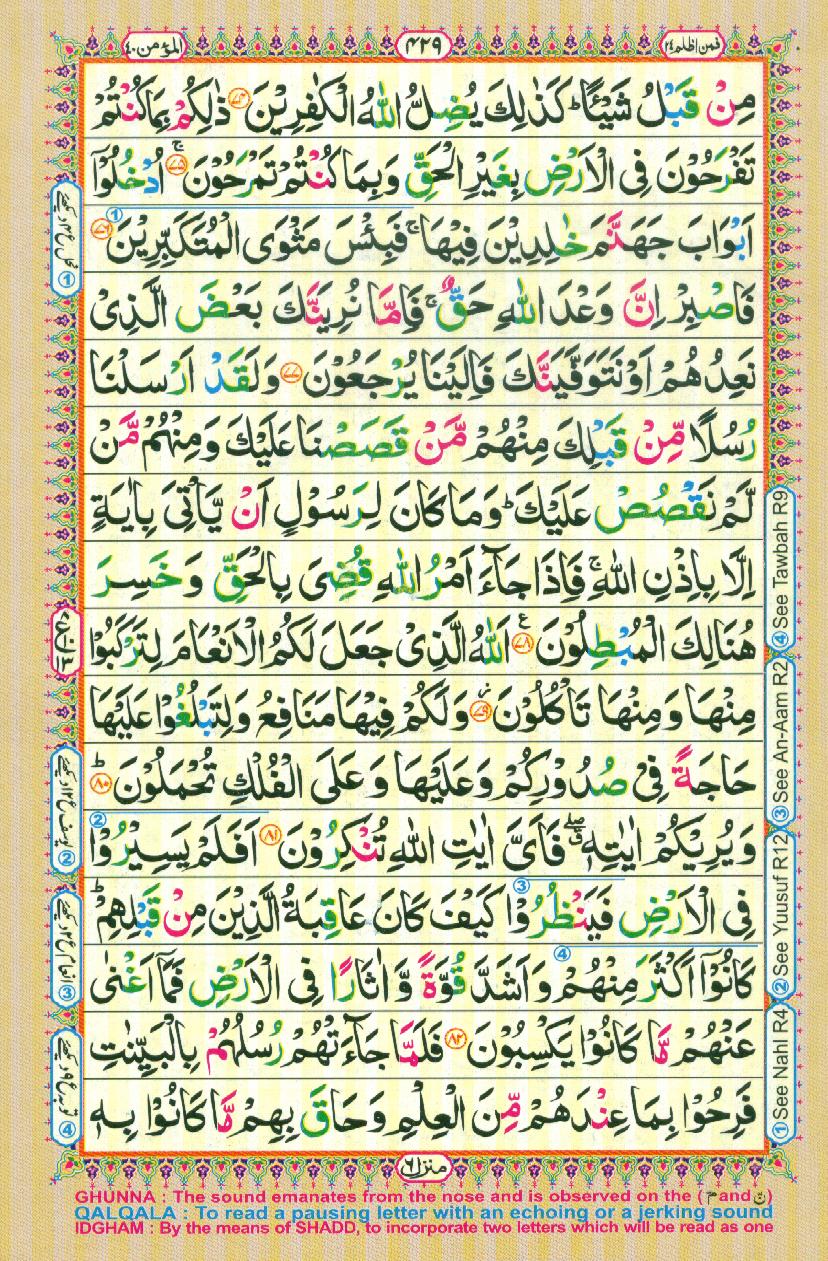 المؤمن ٤٠
٤٢٩
فمن اظلم ٢٤
مِنْ قَبْلُ شَيْـًٔا ؕ كَذٰلِكَ يُضِلُّ اللّٰهُ الْكٰفِرِيْنَ ﴿۷۴﴾ ذٰلِكُمْ بِمَا كُنْتُمْ
تَفْرَحُوْنَ فِى الْاَرْضِ بِغَيْرِ الْحَقِّ وَبِمَا كُنْتُمْ تَمْرَحُوْنَ ۚ ﴿۷۵﴾ اُدْخُلُوْۤا
اَبْوَابَ جَهَنَّمَ خٰلِدِيْنَ فِيْهَا ۚ فَبِئْسَ مَثْوَى الْمُتَكَبِّرِيْنَ ﴿۷۶﴾
فَاصْبِرْ اِنَّ وَعْدَ اللّٰهِ حَقٌّ ۚ فَاِمَّا نُرِيَنَّكَ بَعْضَ الَّذِىْ
نَعِدُهُمْ اَوْ نَتَوَفَّيَنَّكَ فَاِلَيْنَا يُرْجَعُوْنَ ﴿۷۷﴾ وَلَقَدْ اَرْسَلْنَا
رُسُلًا مِّنْ قَبْلِكَ مِنْهُمْ مَّنْ قَصَصْنَا عَلَيْكَ وَمِنْهُمْ مَّنْ
لَّمْ نَقْصُصْ عَلَيْكَ ؕ وَمَا كَانَ لِرَسُوْلٍ اَنْ يَّاْتِىَ بِاٰيَةٍ
اِلَّا بِاِذْنِ اللّٰهِ ۚ فَاِذَا جَآءَ اَمْرُ اللّٰهِ قُضِىَ بِالْحَقِّ وَخَسِرَ
هُنَالِكَ الْمُبْطِلُوْنَ ﴿۷۸﴾ ع اَللّٰهُ الَّذِىْ جَعَلَ لَكُمُ الْاَنْعَامَ لِتَرْكَبُوْا
مِنْهَا وَمِنْهَا تَاْكُلُوْنَ ﴿۷۹﴾ وَلَكُمْ فِيْهَا مَنَافِعُ وَلِتَبْلُغُوْا عَلَيْهَا
حَاجَةً فِىْ صُدُوْرِكُمْ وَعَلَيْهَا وَعَلَى الْفُلْكِ تُحْمَلُوْنَ ؕ ﴿۸۰﴾
وَيُرِيْكُمْ اٰيٰتِهٖ ۖ فَاَىَّ اٰيٰتِ اللّٰهِ تُنْكِرُوْنَ ﴿۸۱﴾ اَفَلَمْ يَسِيْرُوْا
فِى الْاَرْضِ فَيَنْظُرُوْا كَيْفَ كَانَ عَاقِبَةُ الَّذِيْنَ مِنْ قَبْلِهِمْ ؕ
كَانُوْۤا اَكْثَرَ مِنْهُمْ وَاَشَدَّ قُوَّةً وَّاٰثَارًا فِى الْاَرْضِ فَمَاۤ اَغْنٰى
عَنْهُمْ مَّا كَانُوْا يَكْسِبُوْنَ ﴿۸۲﴾ فَلَمَّا جَآءَتْهُمْ رُسُلُهُمْ بِالْبَيِّنٰتِ
فَرِحُوْا بِمَا عِنْدَهُمْ مِّنَ الْعِلْمِ وَحَاقَ بِهِمْ مَّا كَانُوْا بِهٖ
منزل ٦
① See Nahl R4
② See Yuusuf R12
③ See An-Aam R2
④ See Tawbah R9
GHUNNA : The sound emanates from the nose and is observed on the ( مّ and نّ )
QALQALA : To read a pausing letter with an echoing or a jerking sound
IDGHAM : By the means of SHADD, to incorporate two letters which will be read as one